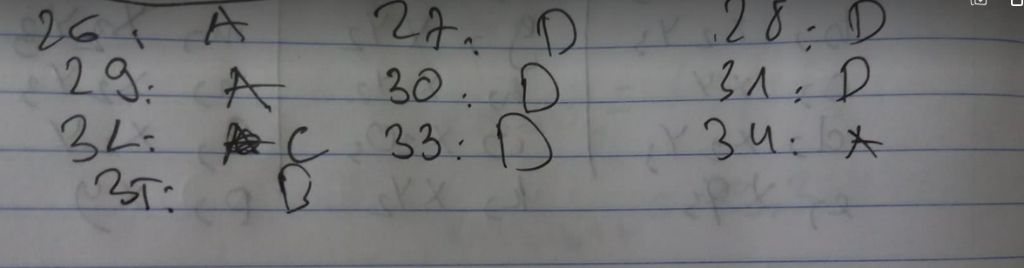 26: A 27: D 28: D
29: A 30: D 31: D
32: C 33: D 34: A
35: D